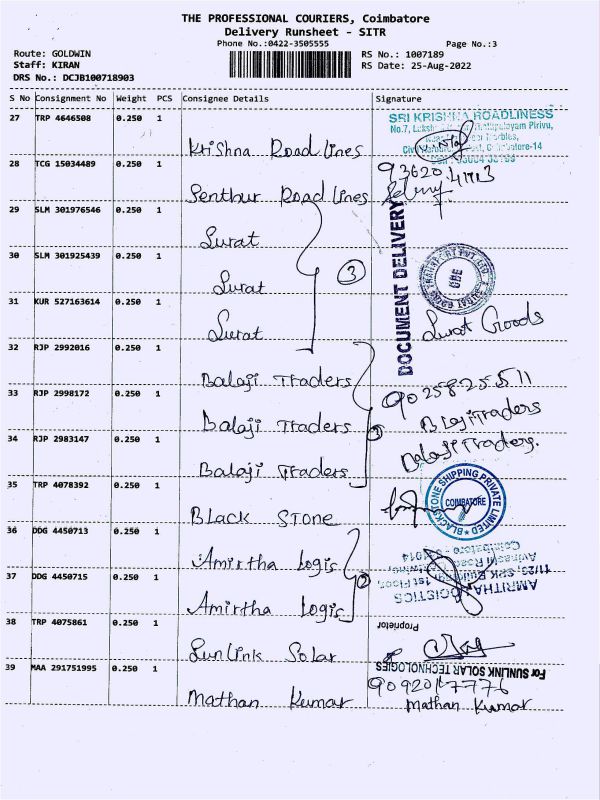 THE PROFESSIONAL COURIERS, Coimbatore
Delivery Runsheet - SITR
Phone No.:0422-3505555
Page No.:3
Route: GOLDWIN
RS No.: 1007189
Staff: KIRAN
RS Date: 25-Aug-2022
DRS No.: DCJB100718903
S No Consignment No Weight PCS Consignee Details Signature
27 TRP 4646508 0.250 1 Krishna Road lines
SRI KRISHNA ROADLINESS
28 TCG 15034489 0.250 1 Senthur Road Lines
29 SLM 301976546 0.250 1 Surat
30 SLM 301925439 0.250 1 Surat
31 KUR 527163614 0.250 1 Surat
3
DOCUMENT DELIVERY
CBE
Surat Goods
32 RJP 2992016 0.250 1 Balaji Traders
33 RJP 2998172 0.250 1 Balaji Traders
34 RJP 2983147 0.250 1 Balaji Traders
Balaji Traders.
35 TRP 4078392 0.250 1 Black Stone
BLACKSTONE SHIPPING PRIVATE LIMITED
COIMBATORE
36 DDG 4450713 0.250 1 Amirtha Logis
37 DDG 4450715 0.250 1 Amirtha Logis
2
AMRITHA LOGISTICS
38 TRP 4075861 0.250 1 Sunlink Solar
Proprietor
For SUNLINK SOLAR TECHNOLOGIES
39 MAA 291751995 0.250 1 Mathan Kumar
Mathan Kumar